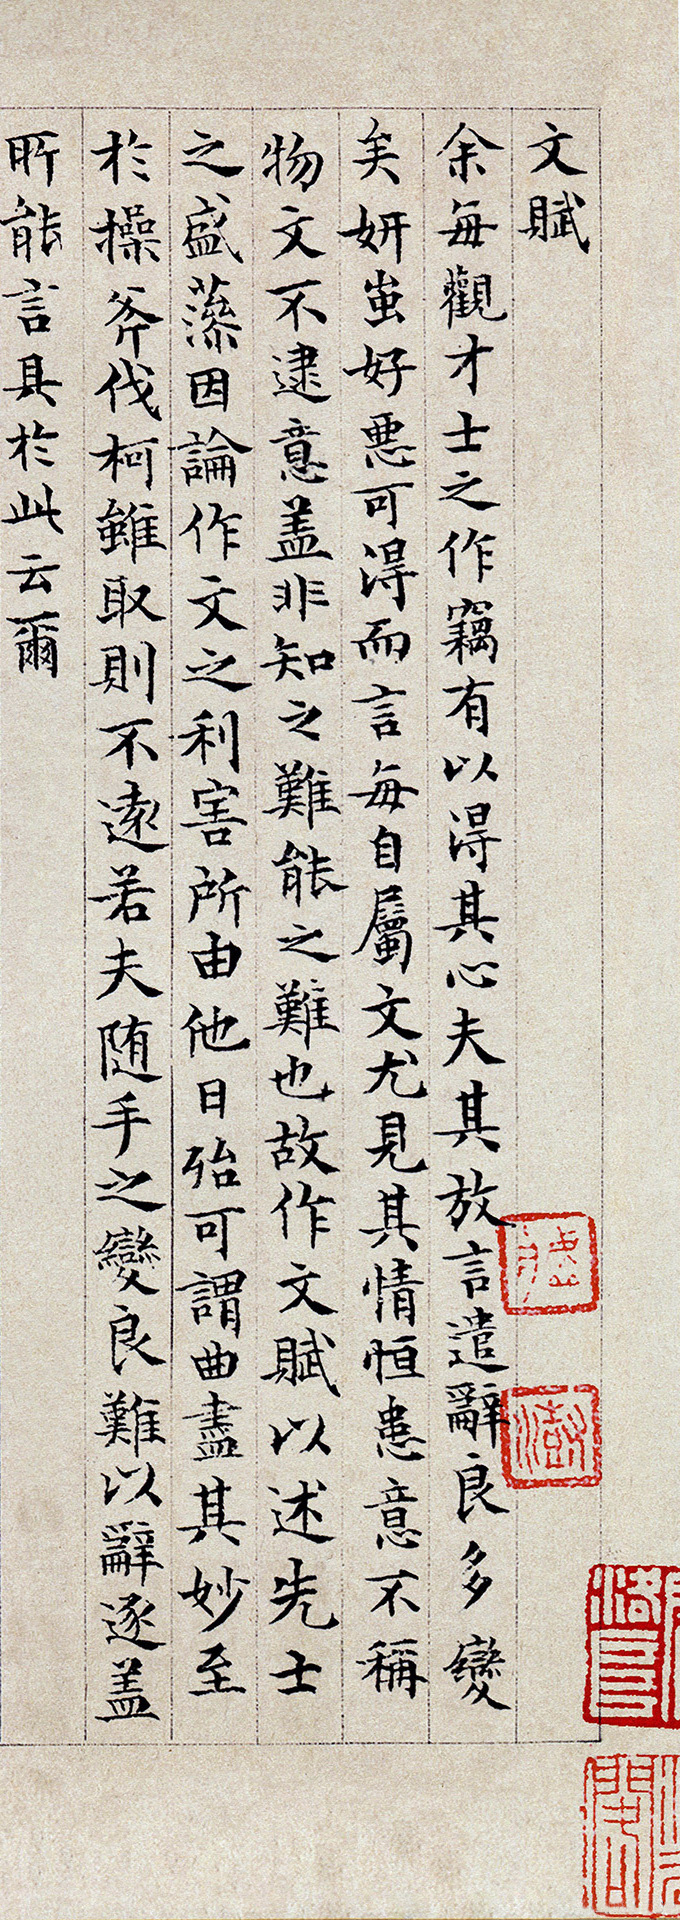 文賦
余每觀才士之作竊有以得其心夫其放言遣辭良多變
矣妍蚩好惡可得而言每自屬文尤見其情恒患意不稱
物文不逮意盖非知之難能之難也故作文賦以述先士
之盛藻因論作文之利害所由他日殆可謂曲盡其妙至
於操斧伐柯雖取則不遠若夫随手之變良難以辭逐盖
所能言具於此云爾